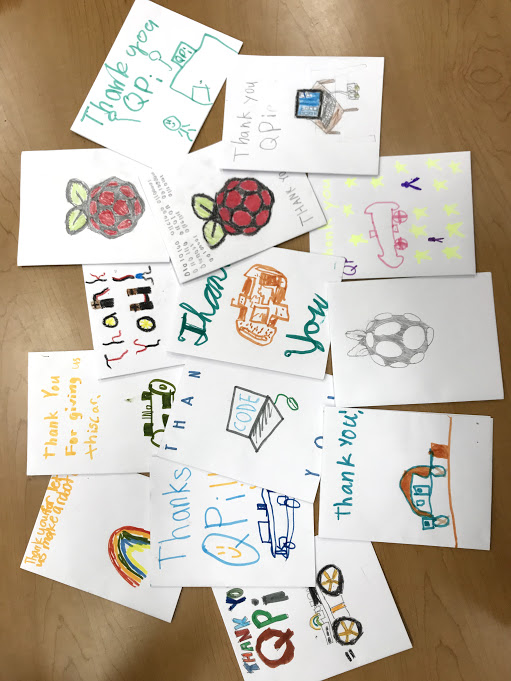 Thank you
QPi
QPi
Thank you
QPi
THANK YO
thank you
QP
Thank
YOU!
Thank
You
Thank You
For giving us
this car.
THAN
CODE
YO
Thank you!
Thank you for let
us make a robot
Thanks
QPi!!
THANK YO
QPi